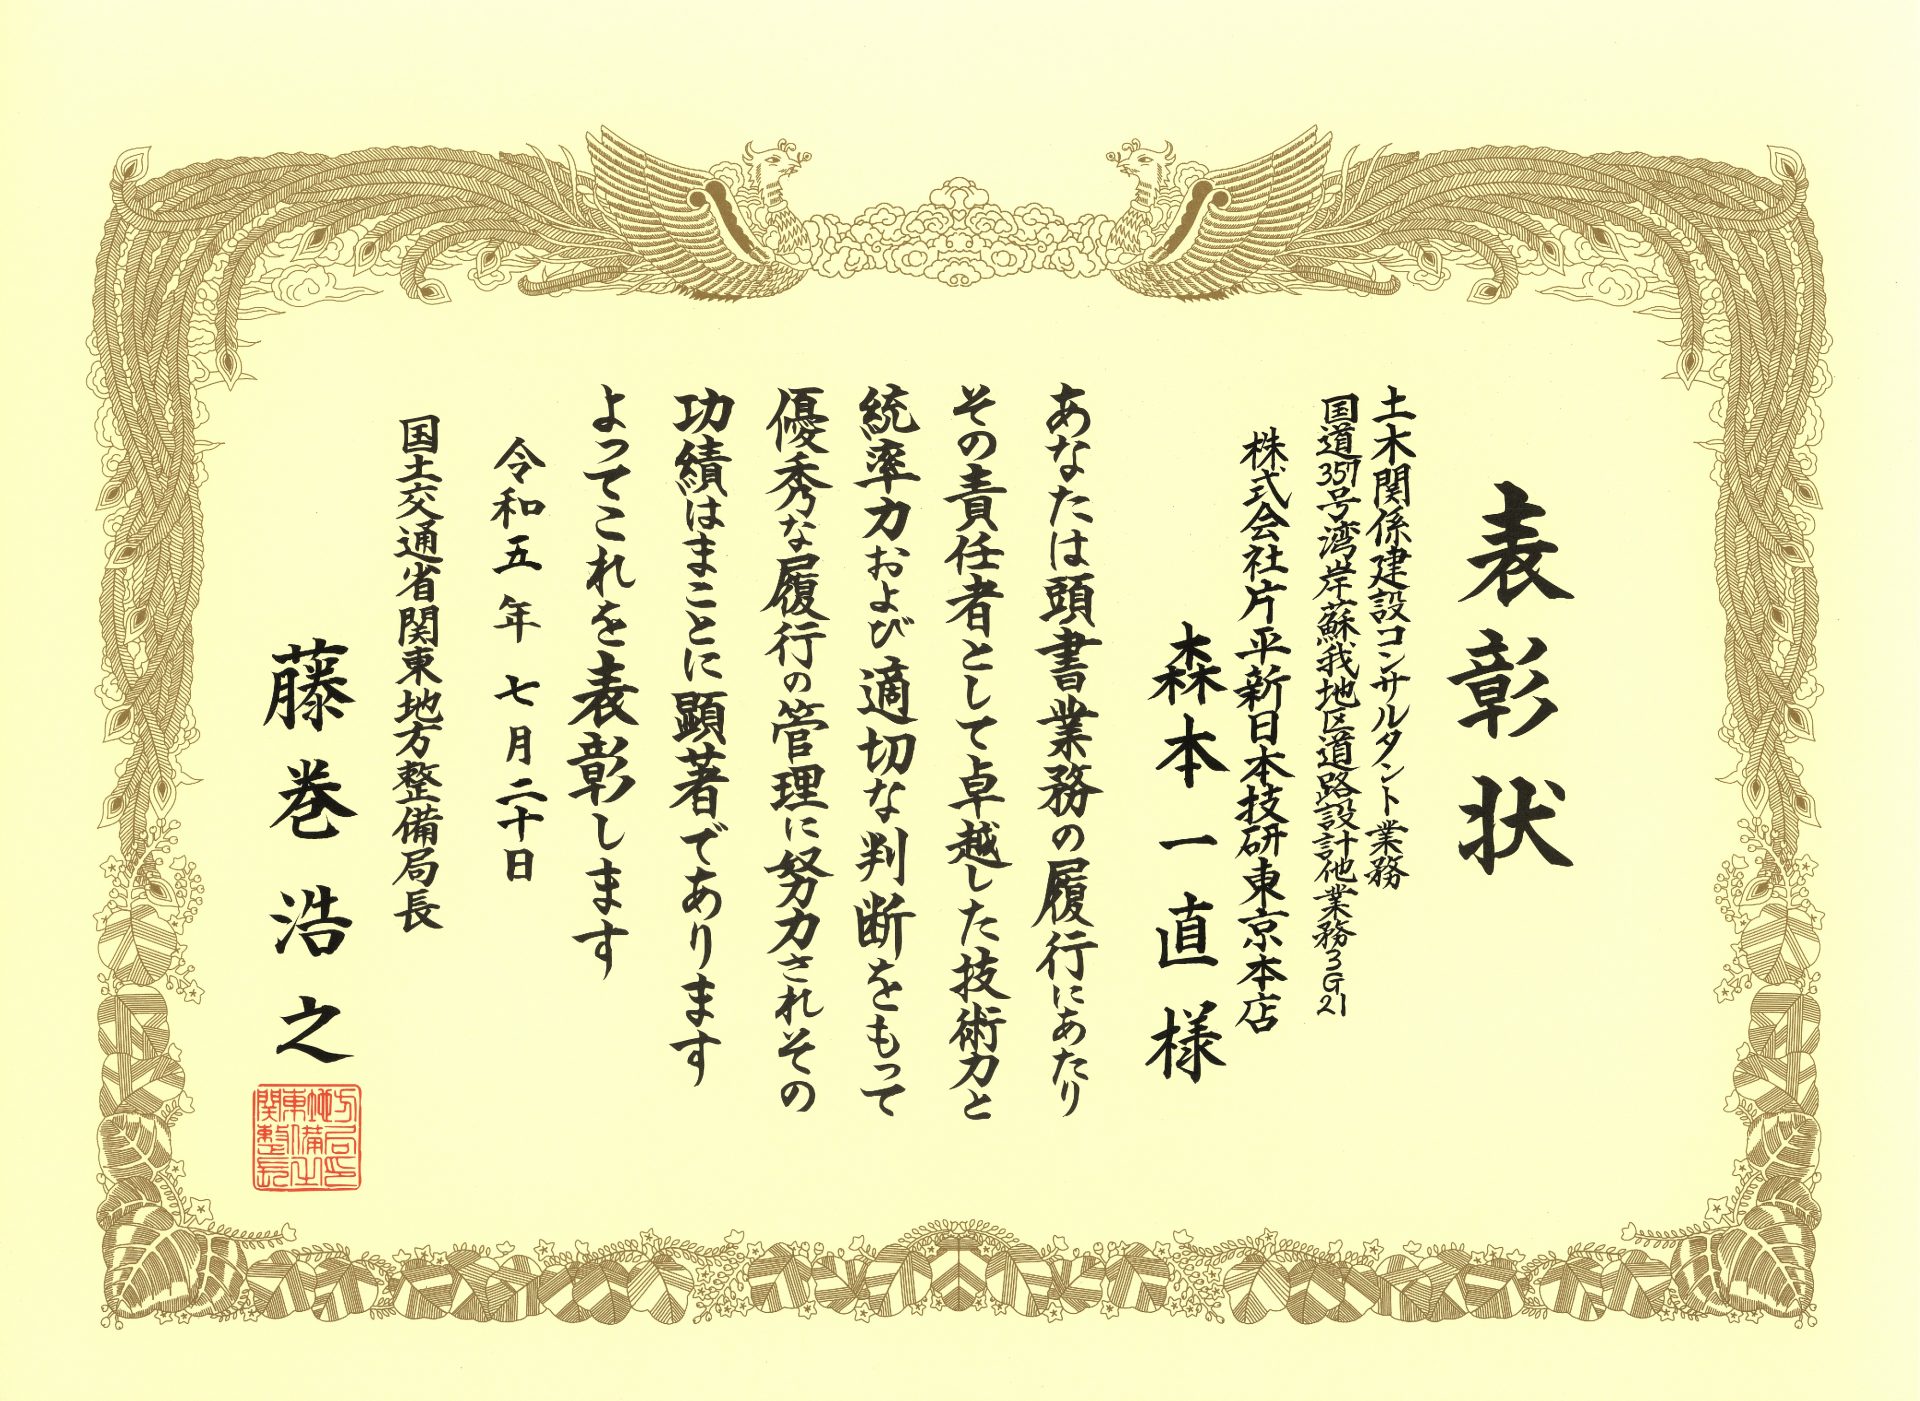 表彰状
土木関係建設コンサルタント業務
国道357号湾岸蘇我地区道路設計他業務3G21
株式会社片平新日本技研東京本店
森本一直様
あなたは頭書業務の履行にあたり
その責任者として卓越した技術力と
統率力および適切な判断をもって
優秀な履行の管理に努力されその
功績はまことに顕著であります
よってこれを表彰します
令和五年七月二十日
国土交通省関東地方整備局長
藤巻浩之